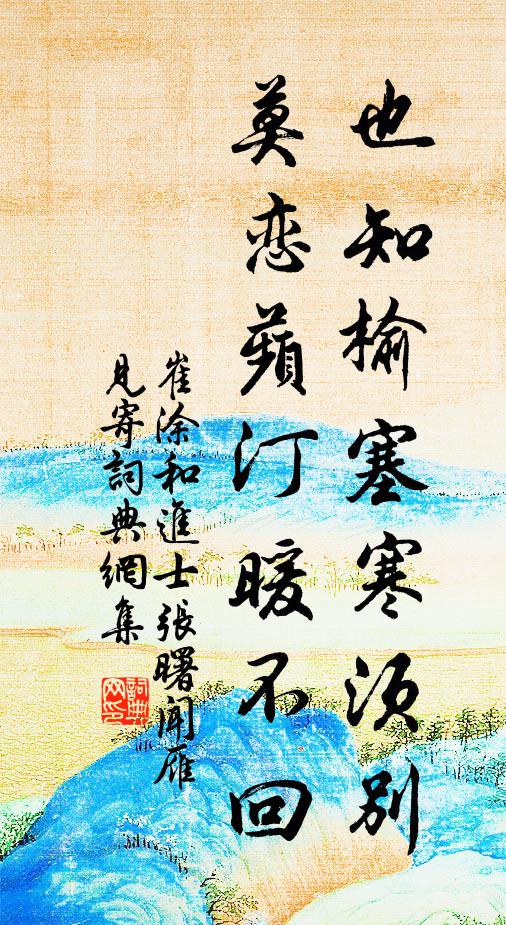 也知榆塞寒須別
莫恋蘋汀暖不回
崔涂和進士張曙聞雁
見寄詞典網集
詞典
网印